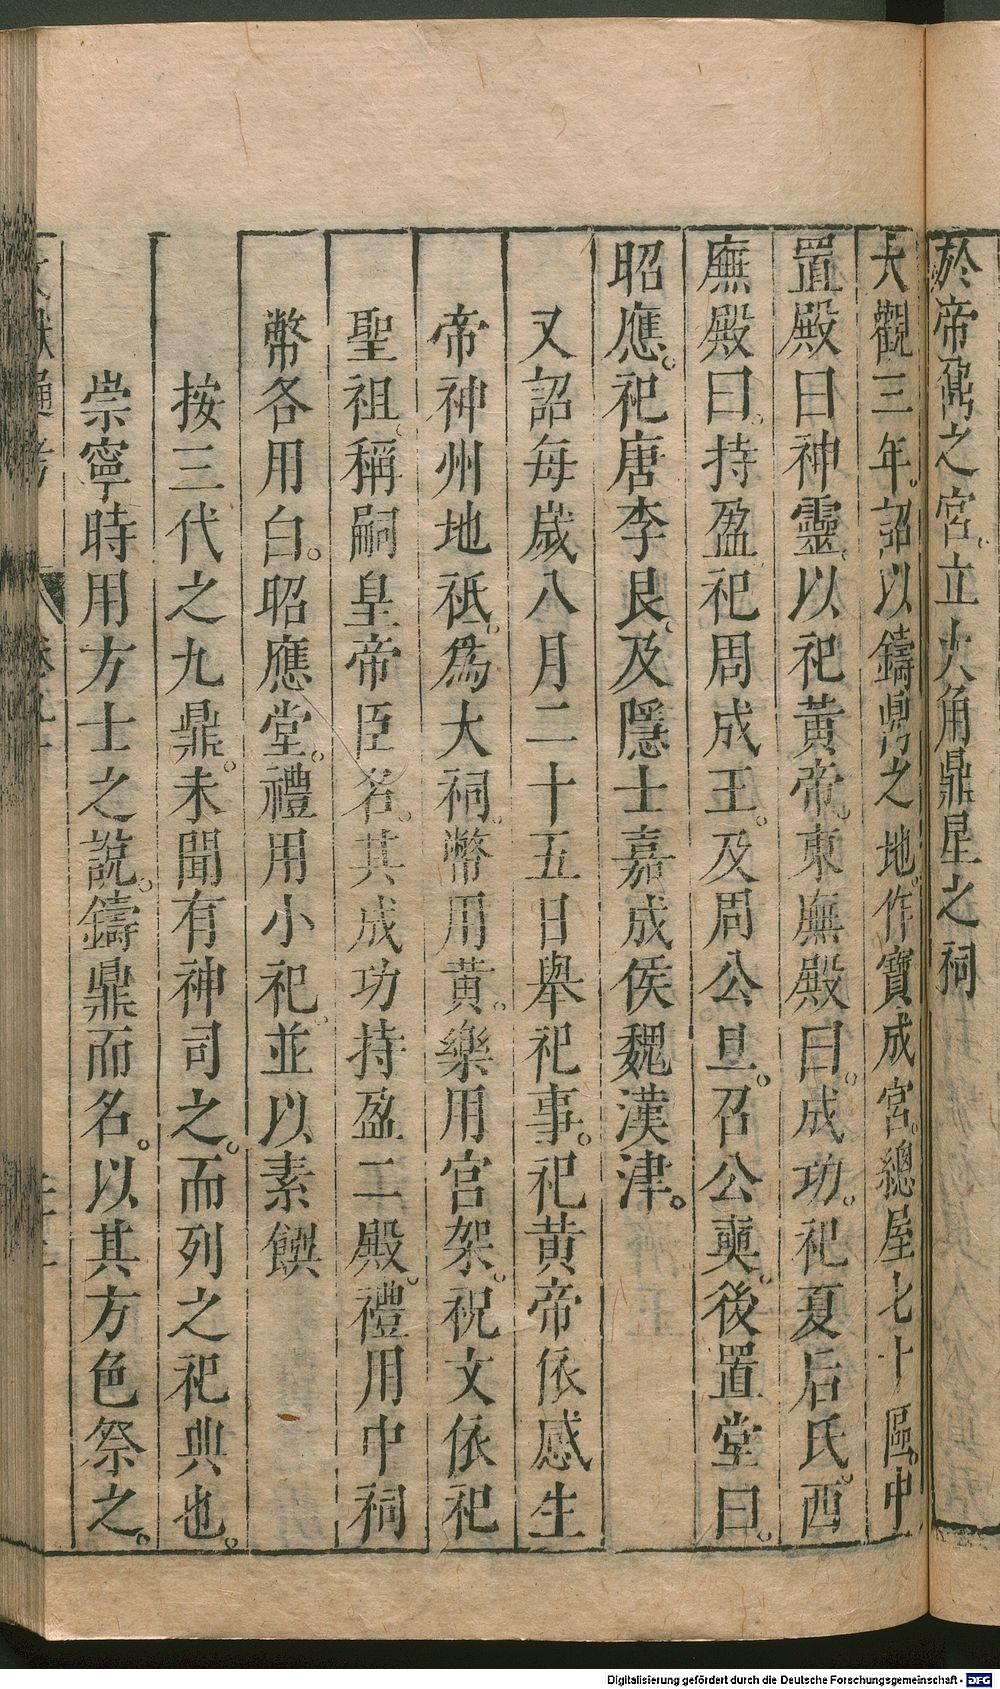 於帝鼐之宮。立大角鼎星之祠
大觀三年。詔以鑄鼎之地。作寶成宮。總屋七十區。中
置殿曰神靈。以祀黃帝。東廡殿曰。成功。祀夏后氏。西
廡殿曰。持盈。祀周成王。及周公旦。召公奭。後置堂曰。
昭應。祀唐李良。及隱士嘉成侯魏漢津。
又詔每歲八月二十五日舉祀事。祀黃帝依感生
帝神州地祇。爲大祠。幣用黃。樂用宮架。祝文依祀
聖祖。稱嗣皇帝臣名。其成功持盈二殿。禮用中祠
幣各用白。昭應堂。禮用小祀。並以素饌
按三代之九鼎。未聞有神司之。而列之祀典也。
崇寧時用方士之說。鑄鼎而名。以其方色祭之。
文獻通考
Digitalisierung gefördert durch die Deutsche Forschungsgemeinschaft - DFG